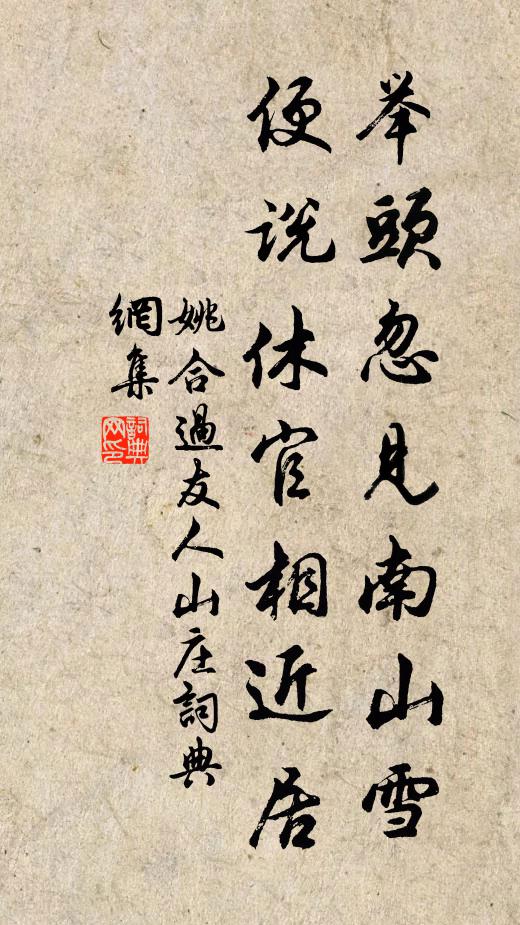 举頭忽見南山雪
便説休官相近居
姚合過友人山庄詞典
網集
詞典
网印